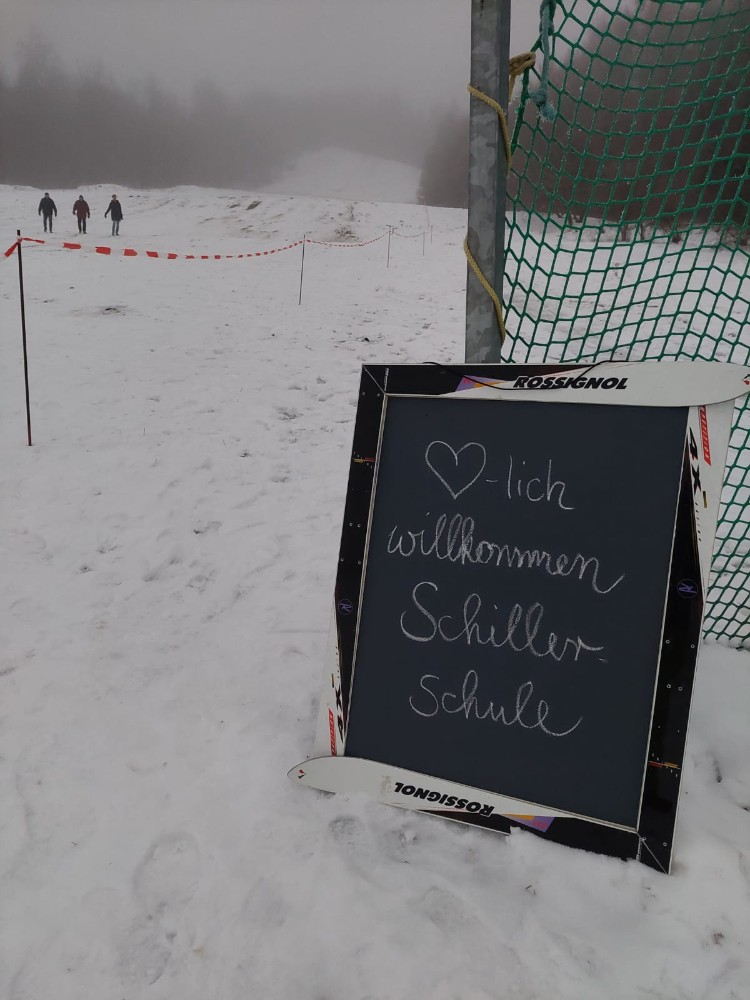 ROSSIGNOL
♡-lich
willkommen
Schiller-
schule
4X
ROSSIGNOL